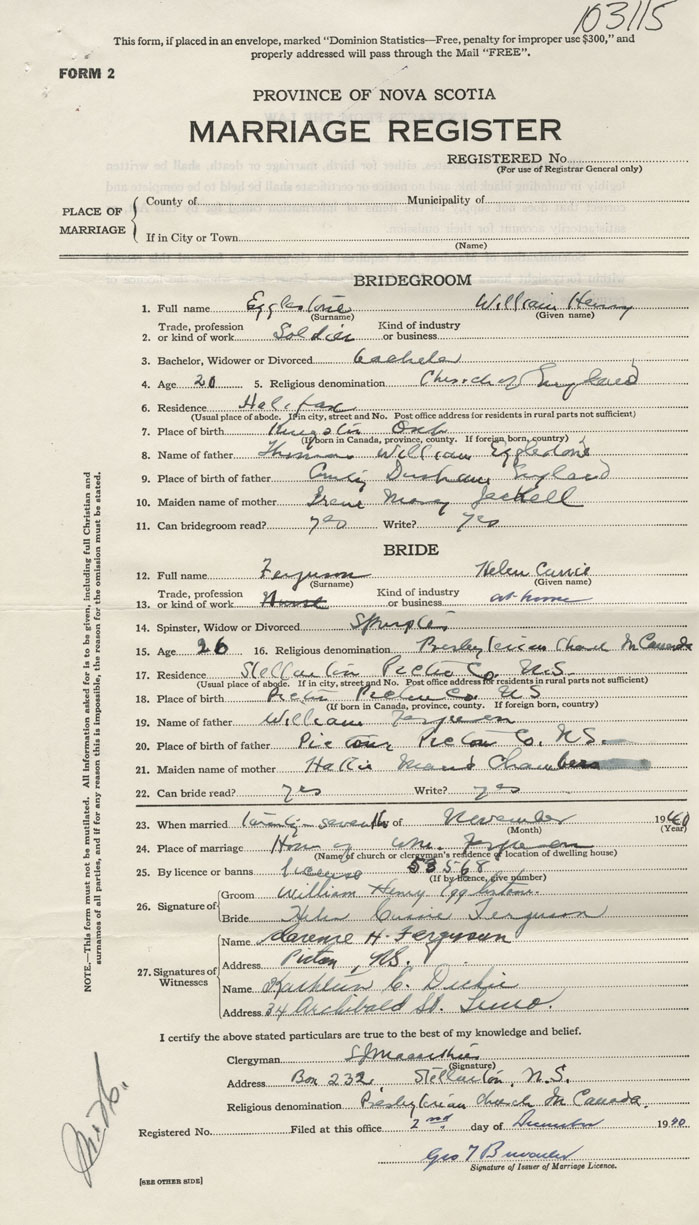 103115
This form, if placed in an envelope, marked "Dominion Statistics—Free, penalty for improper use $300," and
properly addressed will pass through the Mail "FREE".
FORM 2
PROVINCE OF NOVA SCOTIA
MARRIAGE REGISTER
REGISTERED No.
(For use of Registrar General only)
PLACE OF MARRIAGE
County of Municipality of
If in City or Town
(Name)
BRIDEGROOM
1. Full name Egglestone William Henry
(Surname) (Given name)
2. Trade, profession or kind of work Soldier Kind of industry or business
3. Bachelor, Widower or Divorced bachelor
4. Age 20 5. Religious denomination Church of England
6. Residence Halifax
(Usual place of abode. If in city, street and No. Post office address for residents in rural parts not sufficient)
7. Place of birth Kingston Ont
(If born in Canada, province, county. If foreign born, country)
8. Name of father Thomas William Egglestone
9. Place of birth of father County Durham England
10. Maiden name of mother Irene Mary Jackell
11. Can bridegroom read? yes Write? yes
BRIDE
12. Full name Ferguson Helen Carrie
(Surname) (Given name)
13. Trade, profession or kind of work Nurse Kind of industry or business at home
14. Spinster, Widow or Divorced Spinster
15. Age 26 16. Religious denomination Presbyterian Church In Canada
17. Residence Stellarton Pictou Co. N.S.
(Usual place of abode. If in city, street and No. Post office address for residents in rural parts not sufficient)
18. Place of birth Pictou Pictou Co. NS
(If born in Canada, province, county. If foreign born, country)
19. Name of father William Ferguson
20. Place of birth of father Pictou Pictou Co. N.S.
21. Maiden name of mother Hattie Maud Chambers
22. Can bride read? yes Write? yes
23. When married twenty-seventh of November 1940
(Month) (Year)
24. Place of marriage Home of Wm. Ferguson
(Name of church or clergyman's residence or location of dwelling house)
25. By licence or banns license 53568
(If by licence, give number)
26. Signature of
Groom William Henry Egglestone.
Bride Helen Carrie Ferguson
27. Signatures of Witnesses
Name Clarence H. Ferguson
Address Pictou, N.S.
Name Kathleen C.
Address 34 Archibald St. Truro.
I certify the above stated particulars are true to the best of my knowledge and belief.
Clergyman
(Signature)
Address Box 232, Stellarton, N.S.
Religious denomination Presbyterian church In Canada.
Registered No. Filed at this office 2nd day of December 1940
Geo T
Signature of Issuer of Marriage Licence.
[SEE OTHER SIDE]
NOTE.—This form must not be mutilated. All Information asked for is to be given, including full Christian and
surnames of all parties, and if for any reason this is impossible, the reason for the omission must be stated.